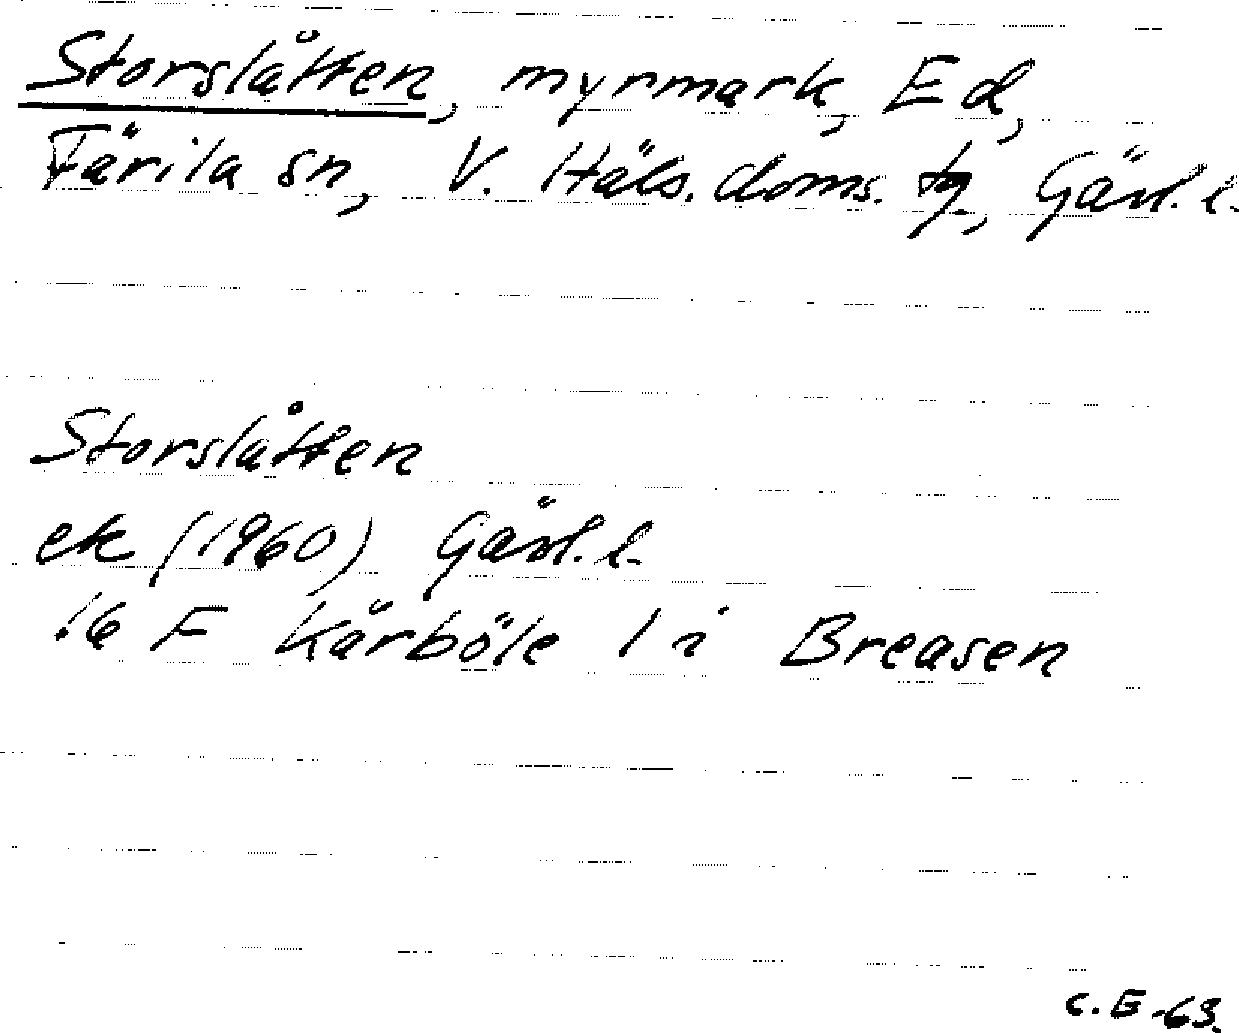 Storslåtten, myrmark, Ed,
Färila sn, V. Häls. doms. tg., Gävl. l.
Storslåtten
ek (1960) Gävl. l.
16 F Kårböle 1 i Breasen
C. E -63.